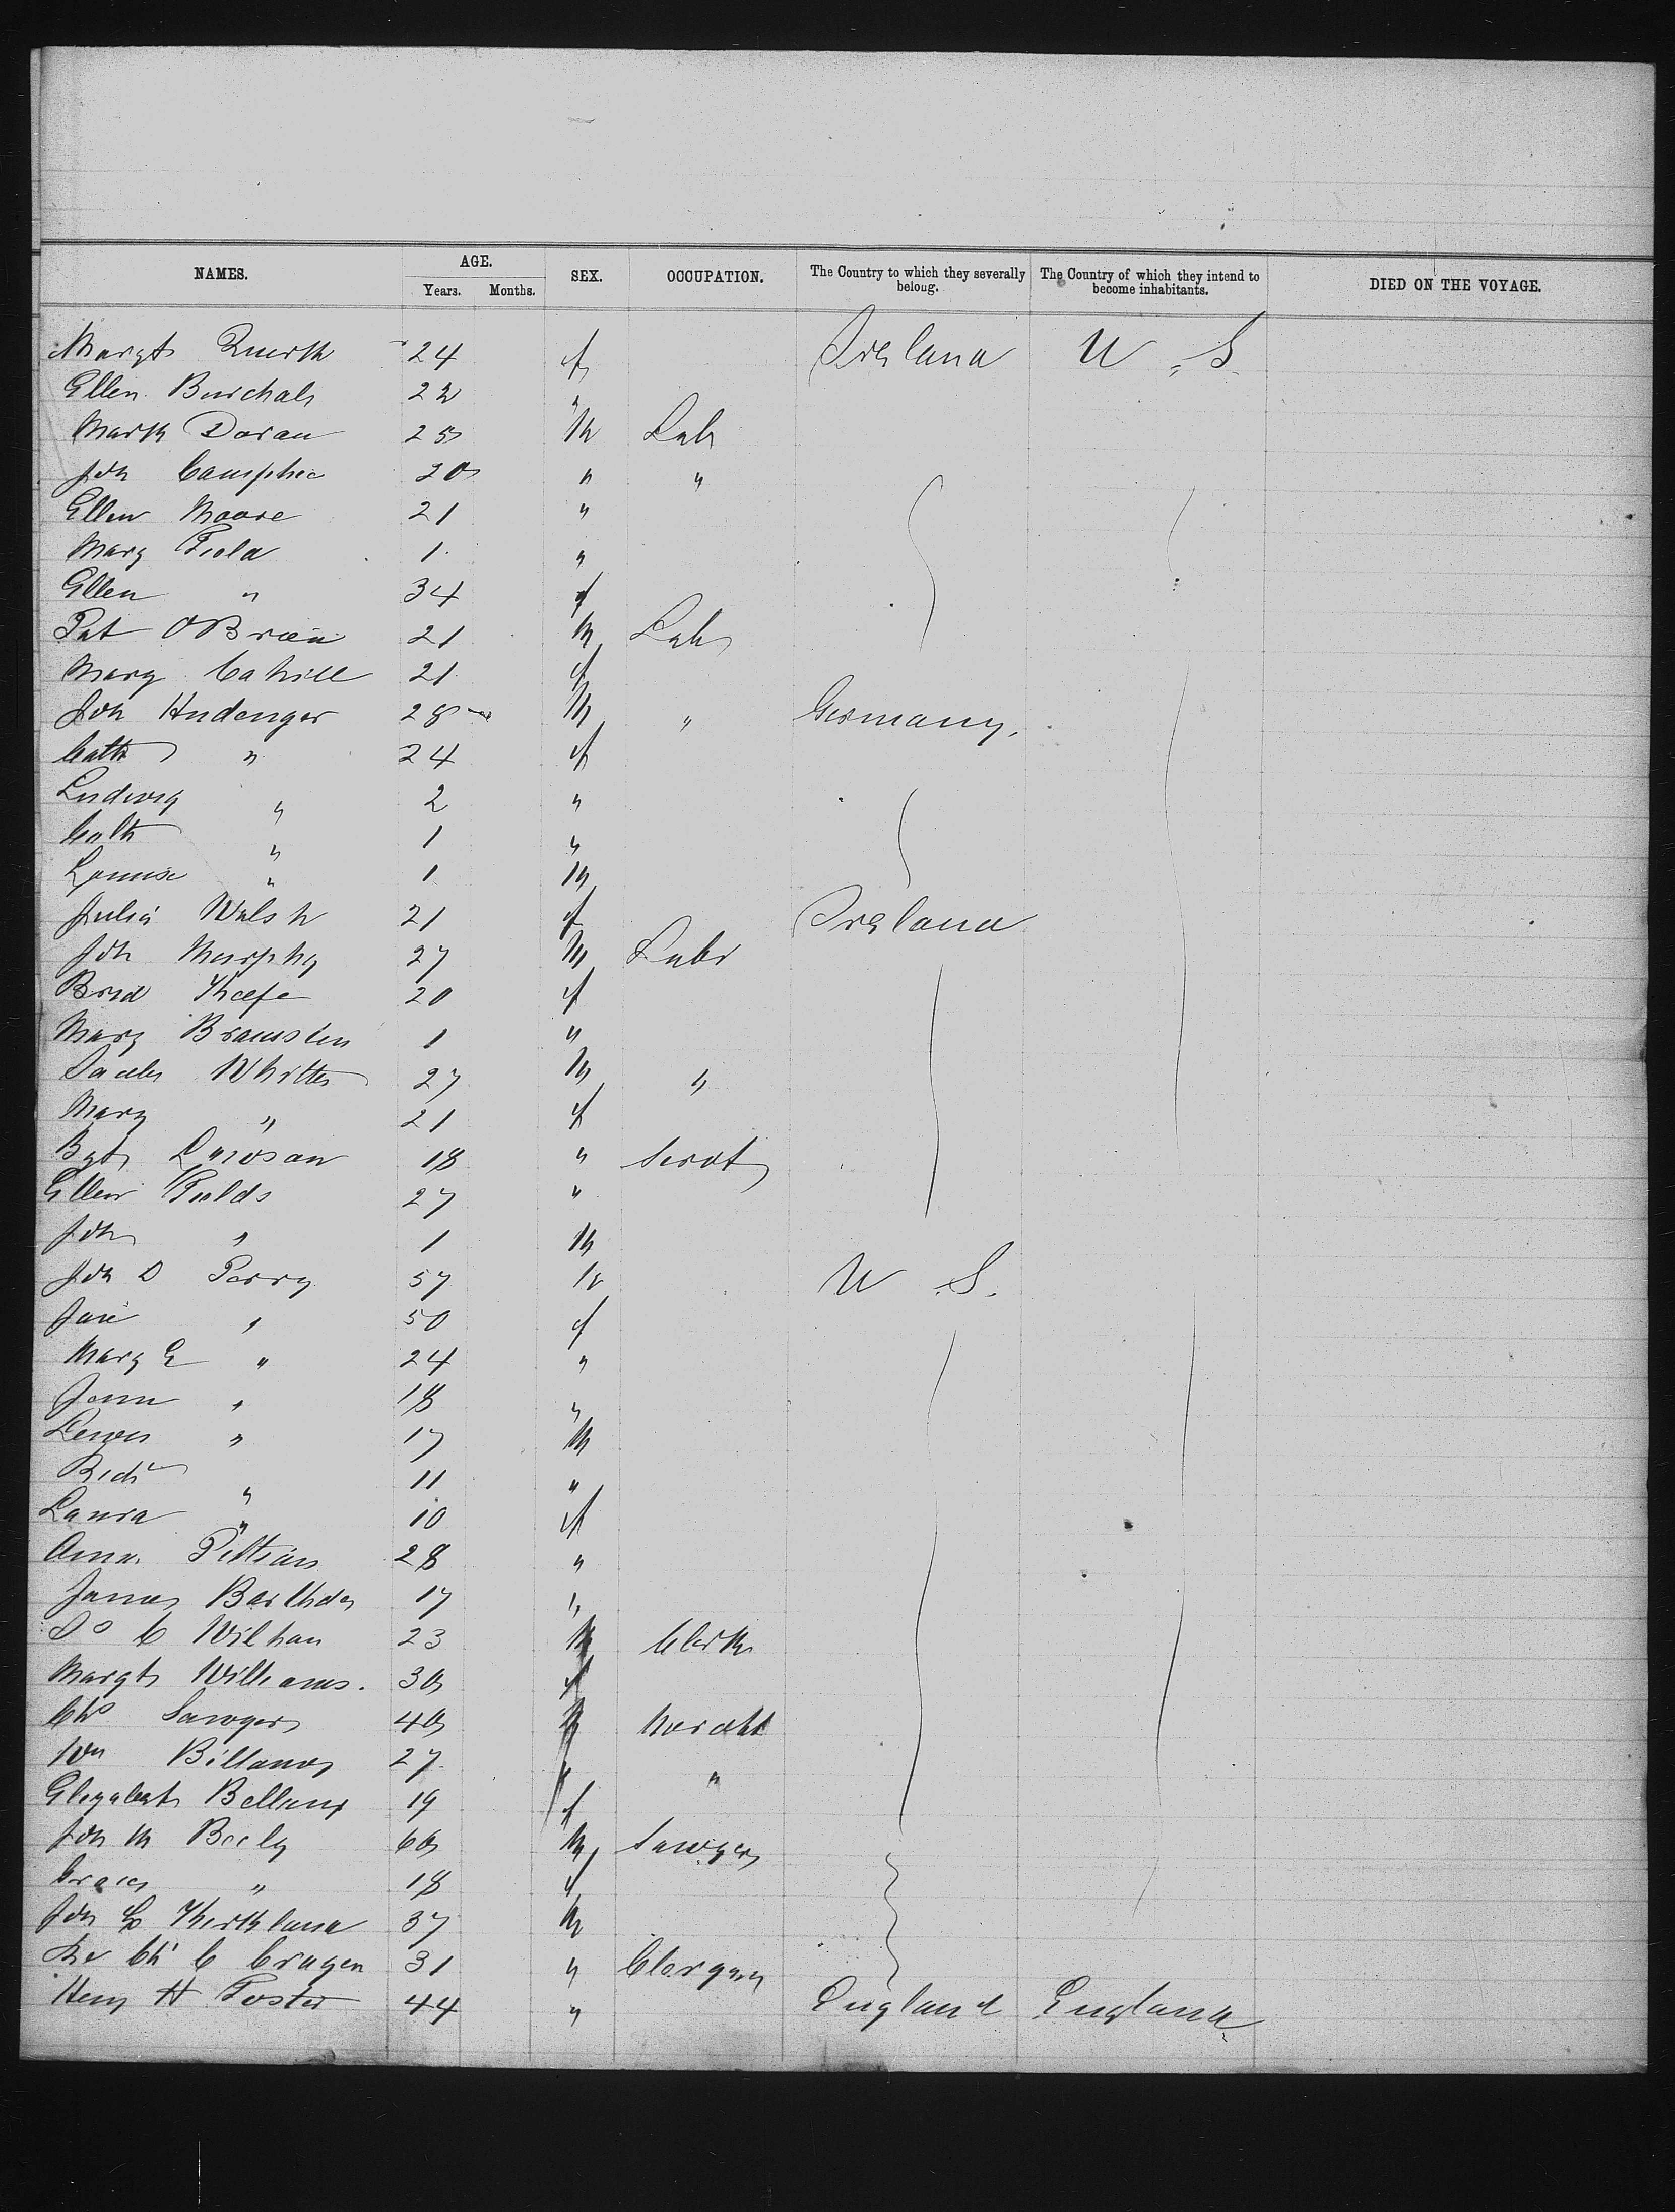 NAMES. AGE. SEX. OCCUPATION. The Country to which they severally belong. The Country of which they intend to become inhabitants. DIED ON THE VOYAGE.
Years. Months.
Margt Quirk 24 f Ireland U.S.
Ellen Burchals 22 "
Mark Doran 25 M Lab
Jon Camphie 20 " "
Ellen Moore 21 "
Mary Field 1 "
Ellen " 34 f
Pat OBrien 21 M Lab
Mary Cahill 21 f
Jon Hudenger 28 M " Germany.
Cath " 24 f
Ludwig " 2 "
Cath " 1 "
Louisa " 1 M
Julia Walsh 21 f Ireland
Jon Murphy 27 M Labr
Brid Keefe 20 f
Mary 1 "
Whitte 27 M "
Mary " 21 f
Bgt Dawson 18 " Servt
Ellen Fields 27 "
Jon " 1 M
Jon D Perry 57 M U S.
Jane " 50 f
Mary E " 24 "
Jenn " 18 "
Lewis " 17 M
Richd " 11 "
Laura " 10 f
Anna 28 "
James 17 "
C 23 M Clerk
Margt Williams. 30 f
Chs Sawyer 40 M Mercht
Wm 27 " "
19 f
Jon M Beely 60 M Sawyer
Grace " 18 f
Jon Kirkland 37 M
Rev Chs C Cragen 31 " Clergym
Heny H Foster 44 " England England